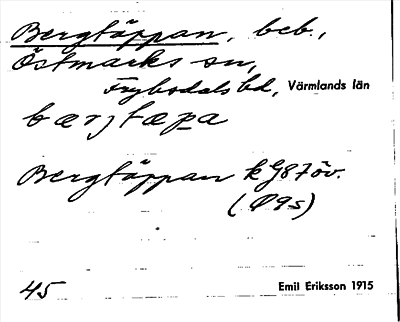 Bergtäppan, beb.,
Östmarks sn,
Fryksdals hd, Värmlands län
bærjtæpa
Bergtäppan k G87öv.
(Ø9s)
45 Emil Eriksson 1915